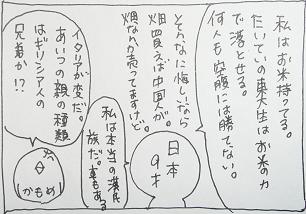 私はお米持ってる。
たいていの東大生はお米の力
で落とせる。
何人も空腹には勝てない。
そんなに悔しいなら
畑買えば中国人が。
畑なんか売ってますけど。
日本
9才
私は本当の漢民
族だ。車もある
イタリアが変だ。
あいつの親の種類
はギリシア人の
兄弟か!?
かもめ